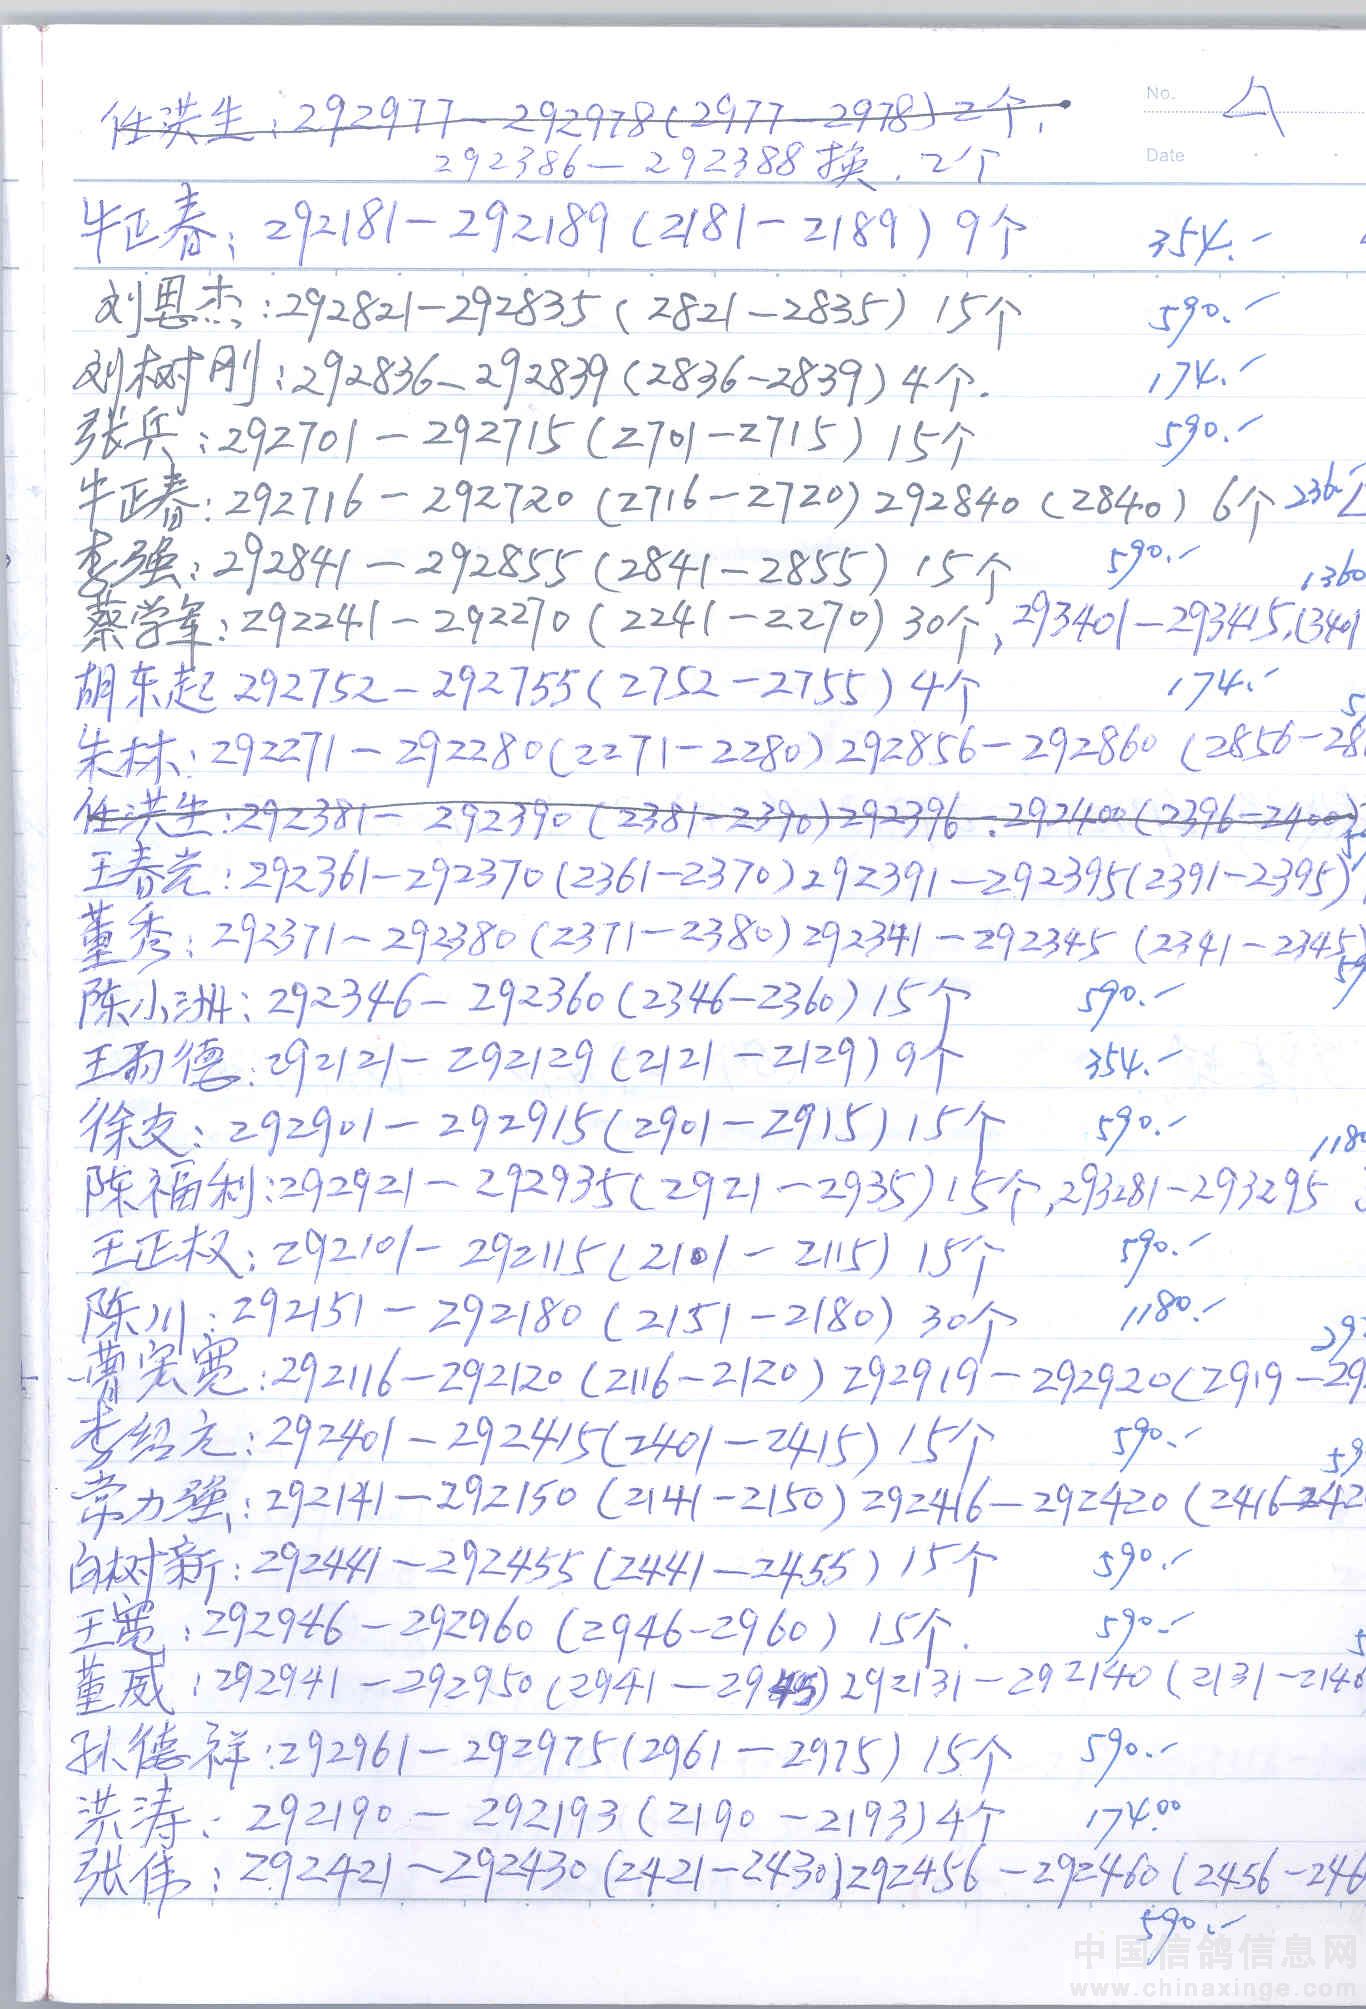 任洪生:292977—292978(2977—2978)2个.
No.
292386—292388换.2个
Date
牛正春:292181—292189(2181—2189)9个 354.-
刘恩杰:292821—292835(2821—2835)15个 590.-
刘树刚:292836—292839(2836—2839)4个. 174.-
张兵:292701—292715(2701—2715)15个 590.-
牛正春:292716—292720(2716—2720)292840(2840)6个 236.-
李强:292841—292855(2841—2855)15个 590.-
1360
蔡学军:292241—292270(2241—2270)30个,293401—293415,(3401
胡东起 292752—292755(2752—2755)4个 174.-
朱林:292271—292280(2271—2280)292856—292860(2856—28
任洪生:292381—292390(2381—2390)292396-292400(2396—2400)
王春党:292361—292370(2361—2370)292391—292395(2391—2395)
董秀:292371—292380(2371—2380)292341—292345(2341—2345)
陈小洲:292346—292360(2346—2360)15个 590.-
王雨德:292121—292129(2121—2129)9个 354.-
徐友:292901—292915(2901—2915)15个 590.-
1180
陈福利:292921—292935(2921—2935)15个,293281—293295
王正权:292101—292115(2101—2115)15个 590.-
陈川:292151—292180(2151—2180)30个 1180.-
曹宏宽:292116—292120(2116—2120)292919—292920(2919—292
李绍元:292401—292415(2401—2415)15个 590.-
常力强:292141—292150(2141—2150)292416—292420(2416—242
白树新:292441—292455(2441—2455)15个 590.-
王宽:292946—292960(2946—2960)15个. 590.-
董威:292941—292950(2941—2945)292131—292140(2131—2140
孙德祥:292961—292975(2961—2975)15个 590.-
洪涛:292190—292193(2190—2193)4个 174.00
张伟:292421—292430(2421—2430)292456—292460(2456—246
590.-
中国信鸽信息网
www.chinaxinge.com